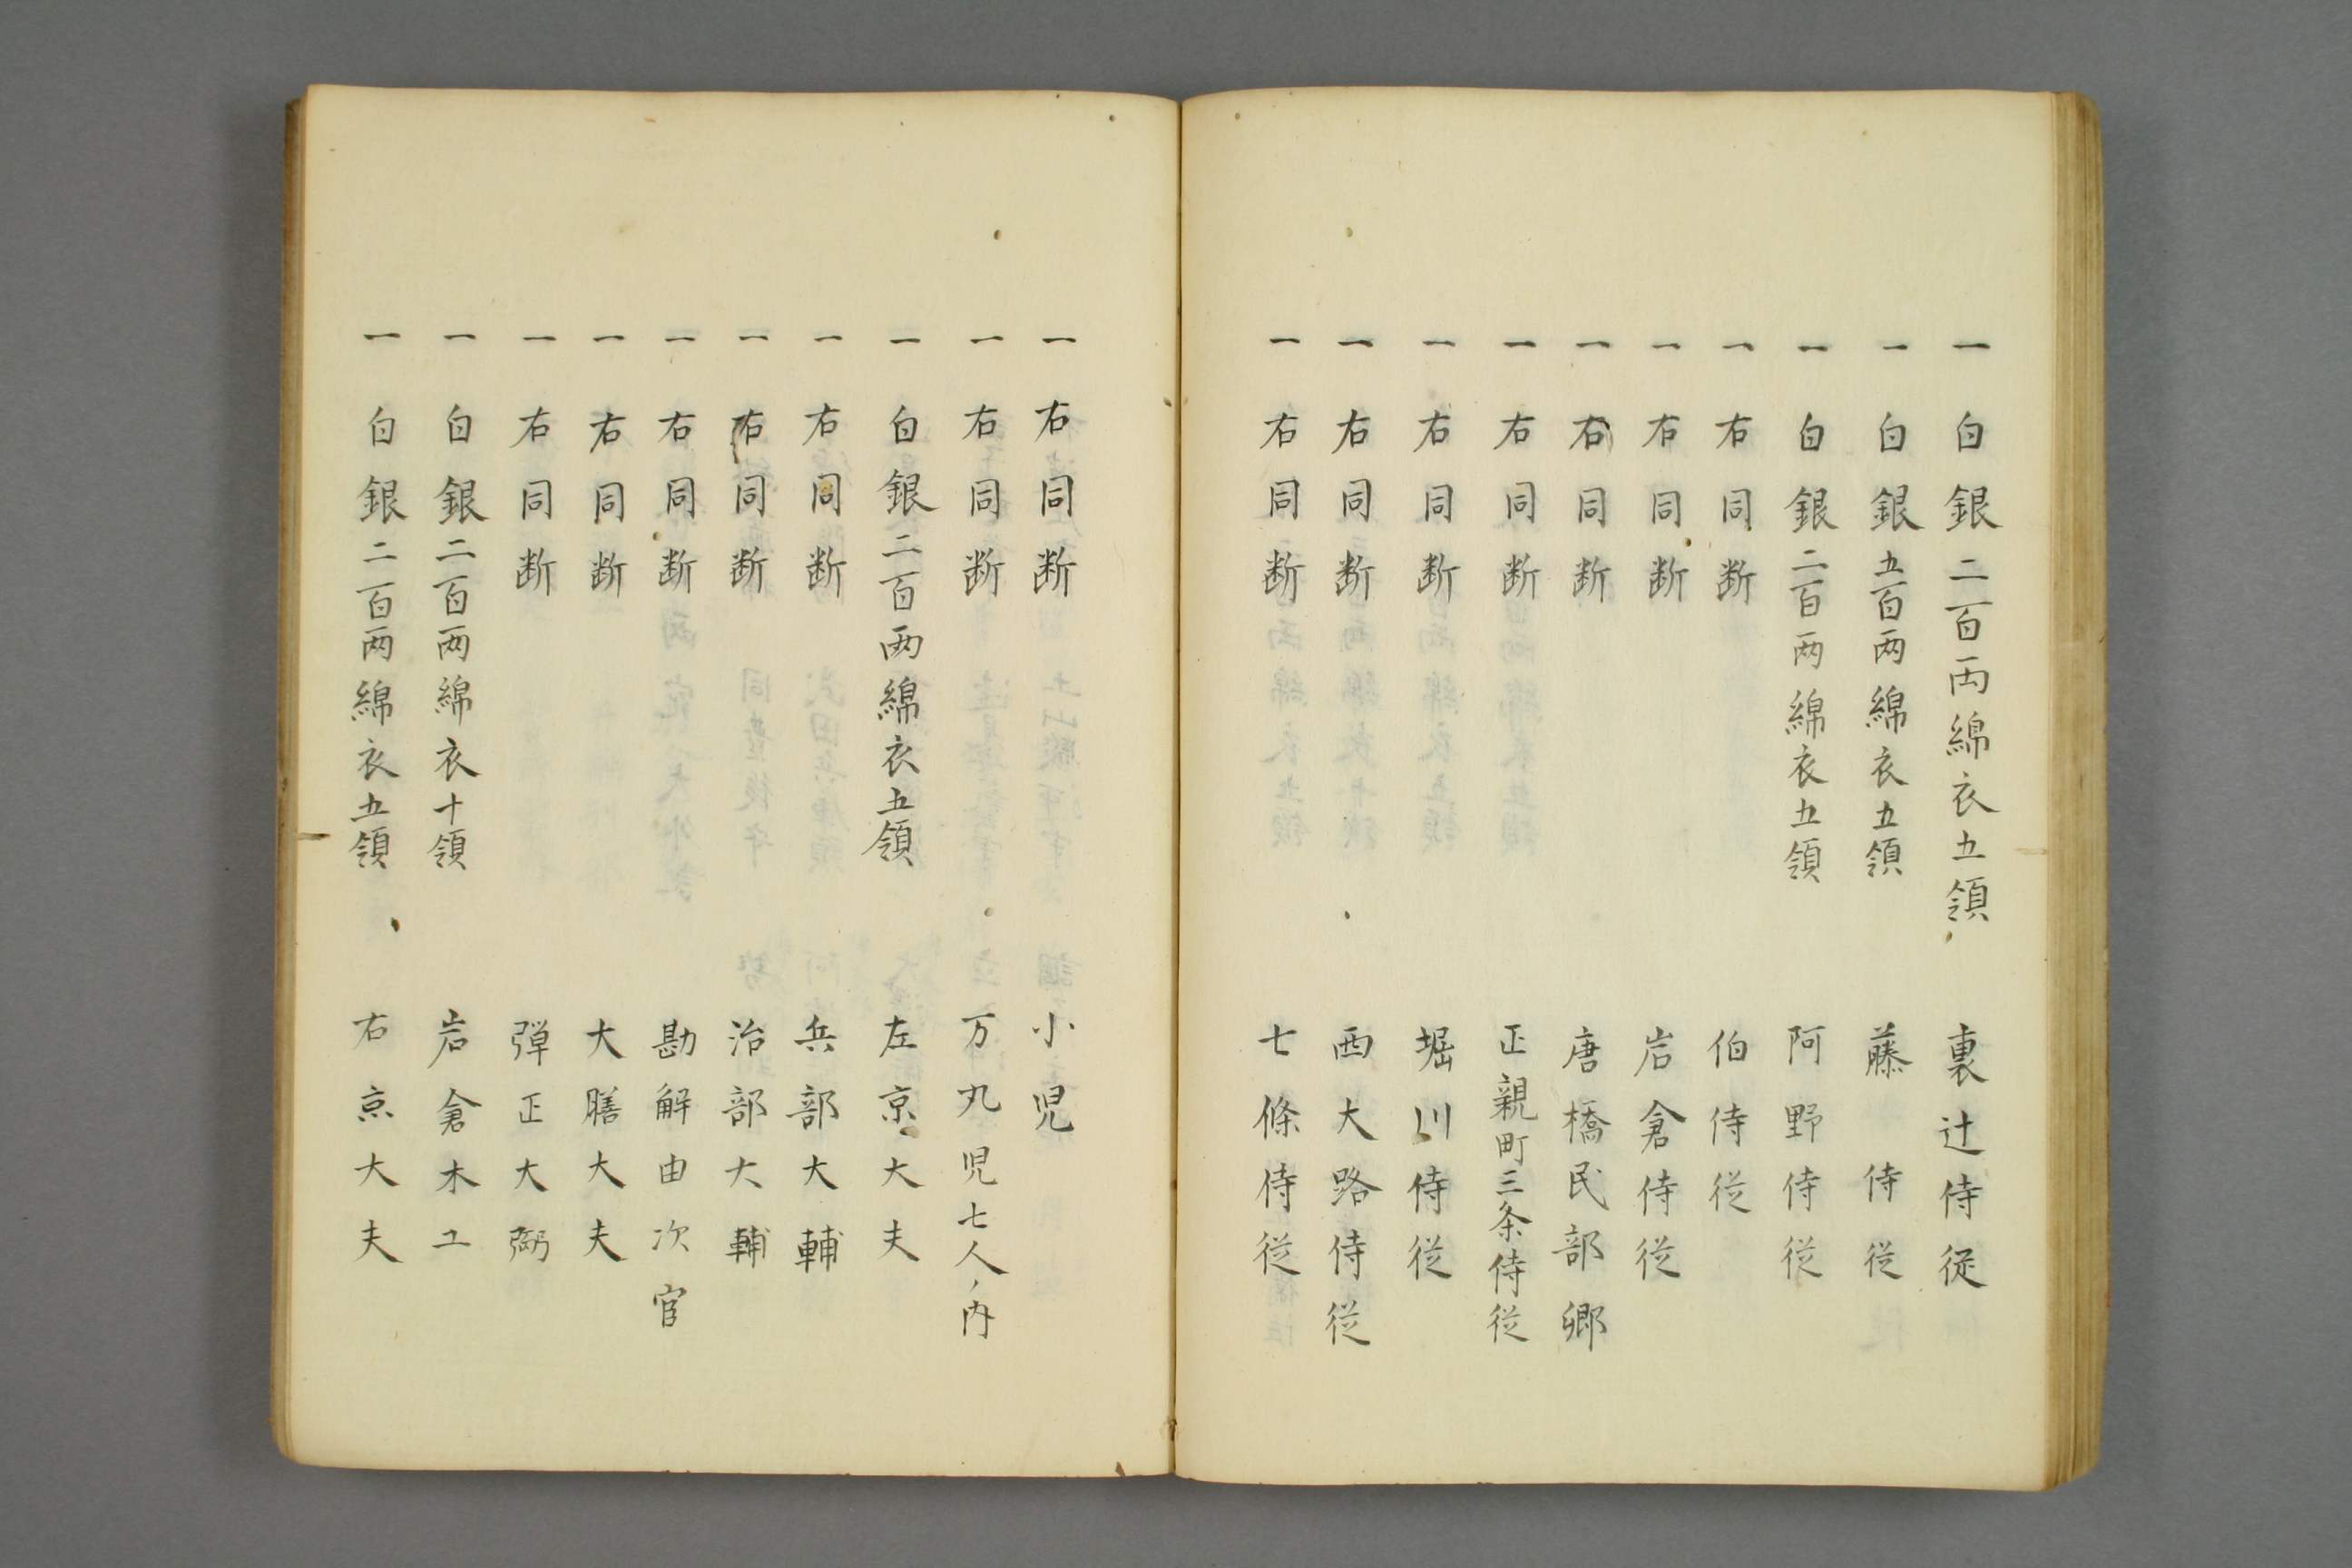 一 白銀二百両綿衣五領 裏辻侍従
一 白銀五百両綿衣五領 藤侍従
一 白銀二百両綿衣五領 阿野侍従
一 右同断 伯侍従
一 右同断 岩倉侍従
一 右同断 唐橋民部卿
一 右同断 正親町三条侍従
一 右同断 堀川侍従
一 右同断 西大路侍従
一 右同断 七條侍従
一 右同断 小児
一 右同断 万丸児七人ノ内
一 白銀二百両綿衣五領 左京大夫
一 右同断 兵部大輔
一 右同断 治部大輔
一 右同断 勘解由次官
一 右同断 大膳大夫
一 右同断 弾正大弼
一 白銀二百両綿衣十領 岩倉木工
一 白銀二百両綿衣五領 右京大夫